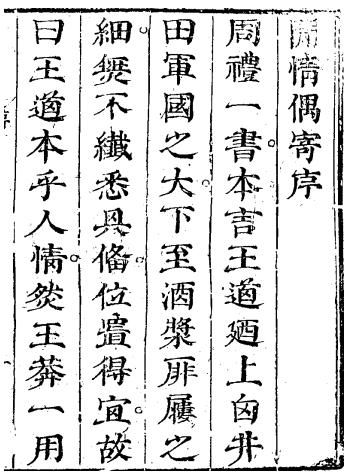 閒情偶寄序
周禮一書。本言王道迺上自井
田軍國之大。下至酒漿屝屨之
細。無不纖悉具備。位置得宜。故
曰王道本乎人情。然王莽一用